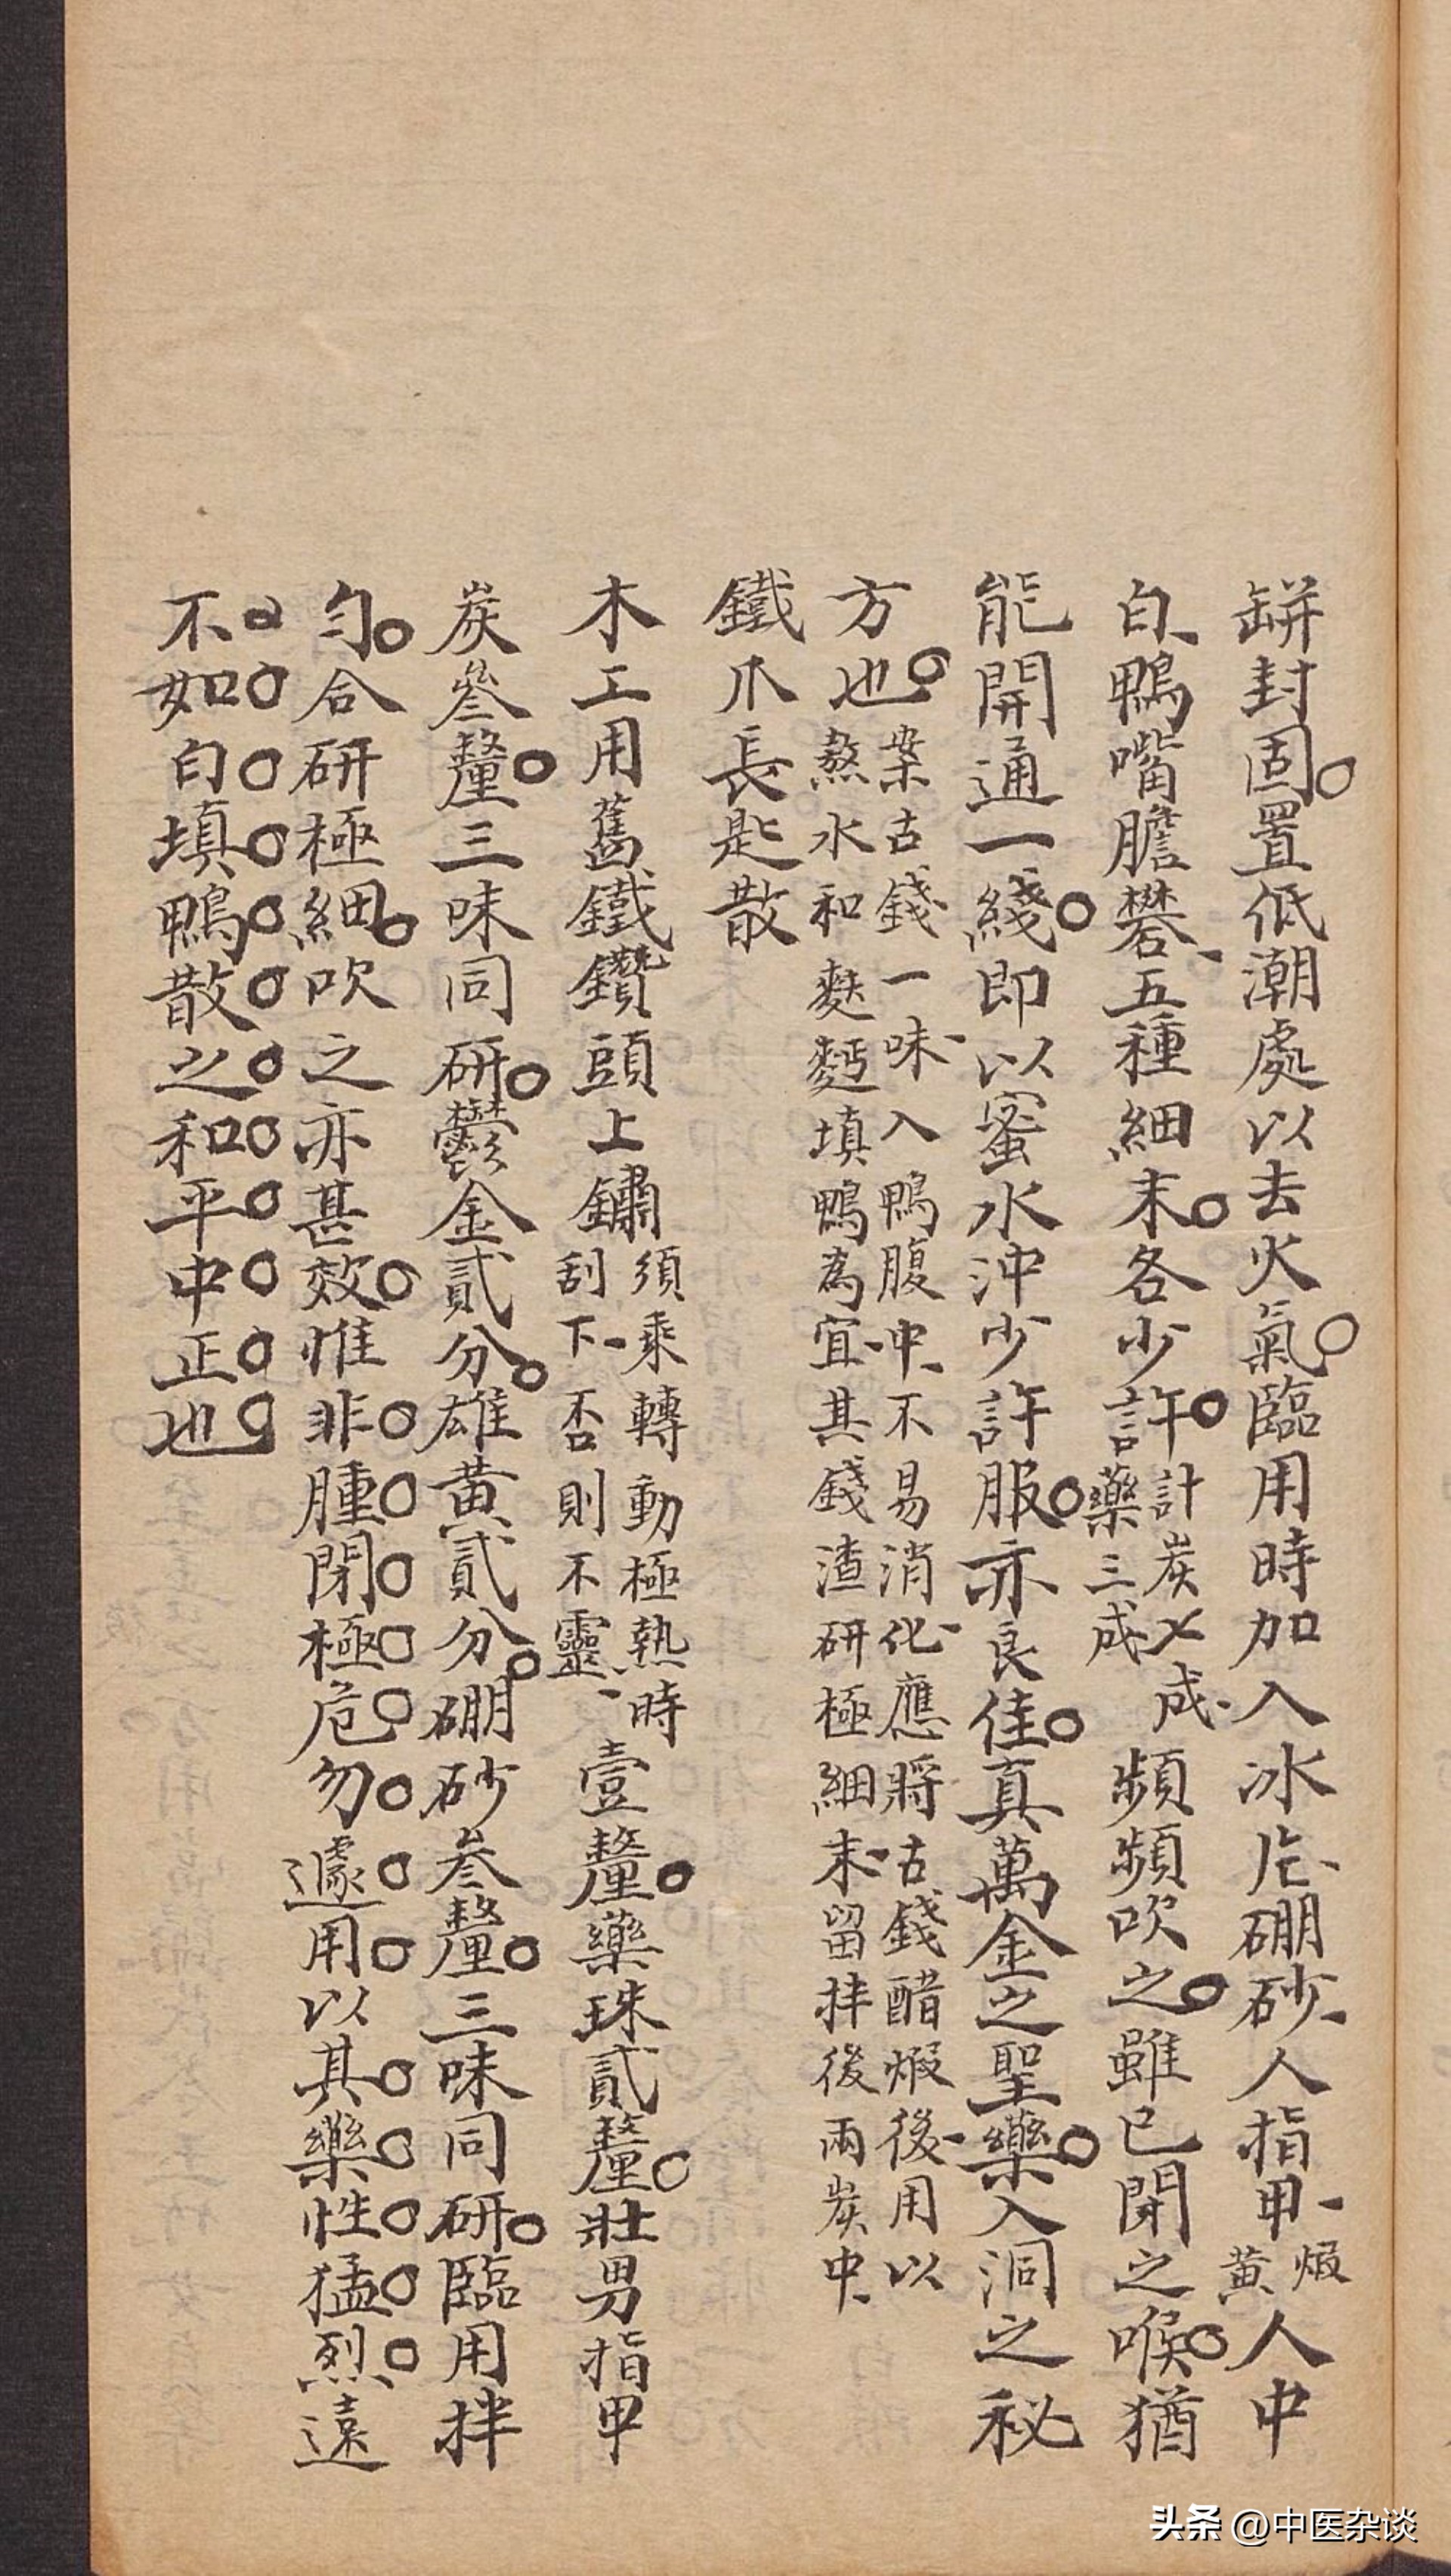 缾封固。置低潮處以去火氣。臨用時加入冰片、硼砂、人指甲、煅黃人中
白、鴨嘴膽礬、五種細末。各少許。計炭〤成、藥三成頻頻吹之。雖已閉之喉。猶
能開通一綫。即以蜜水沖少許服。亦良佳。真萬金之聖藥。入洞之秘
方也。案古錢、一味、入鴨腹中、不易消化、應將古錢醋煅後、用以
熬水和麩麪填鴨為宜、其錢渣研極細末、留拌後兩炭中、
鐵爪長匙散
木工用舊鐵鑽頭上鏽須乘轉動極熱時刮下、否則不靈、壹釐。藥珠貳釐。壯男指甲
炭叄釐。三味同研。鬱金貳分。雄黃貳分。硼砂叄釐。三味同研。臨用拌
勻。合研極細。吹之亦甚效。惟非腫閉極危勿遽用以其藥性猛烈、遠
不如白填鴨散之和平中正也
头条 @中医杂谈